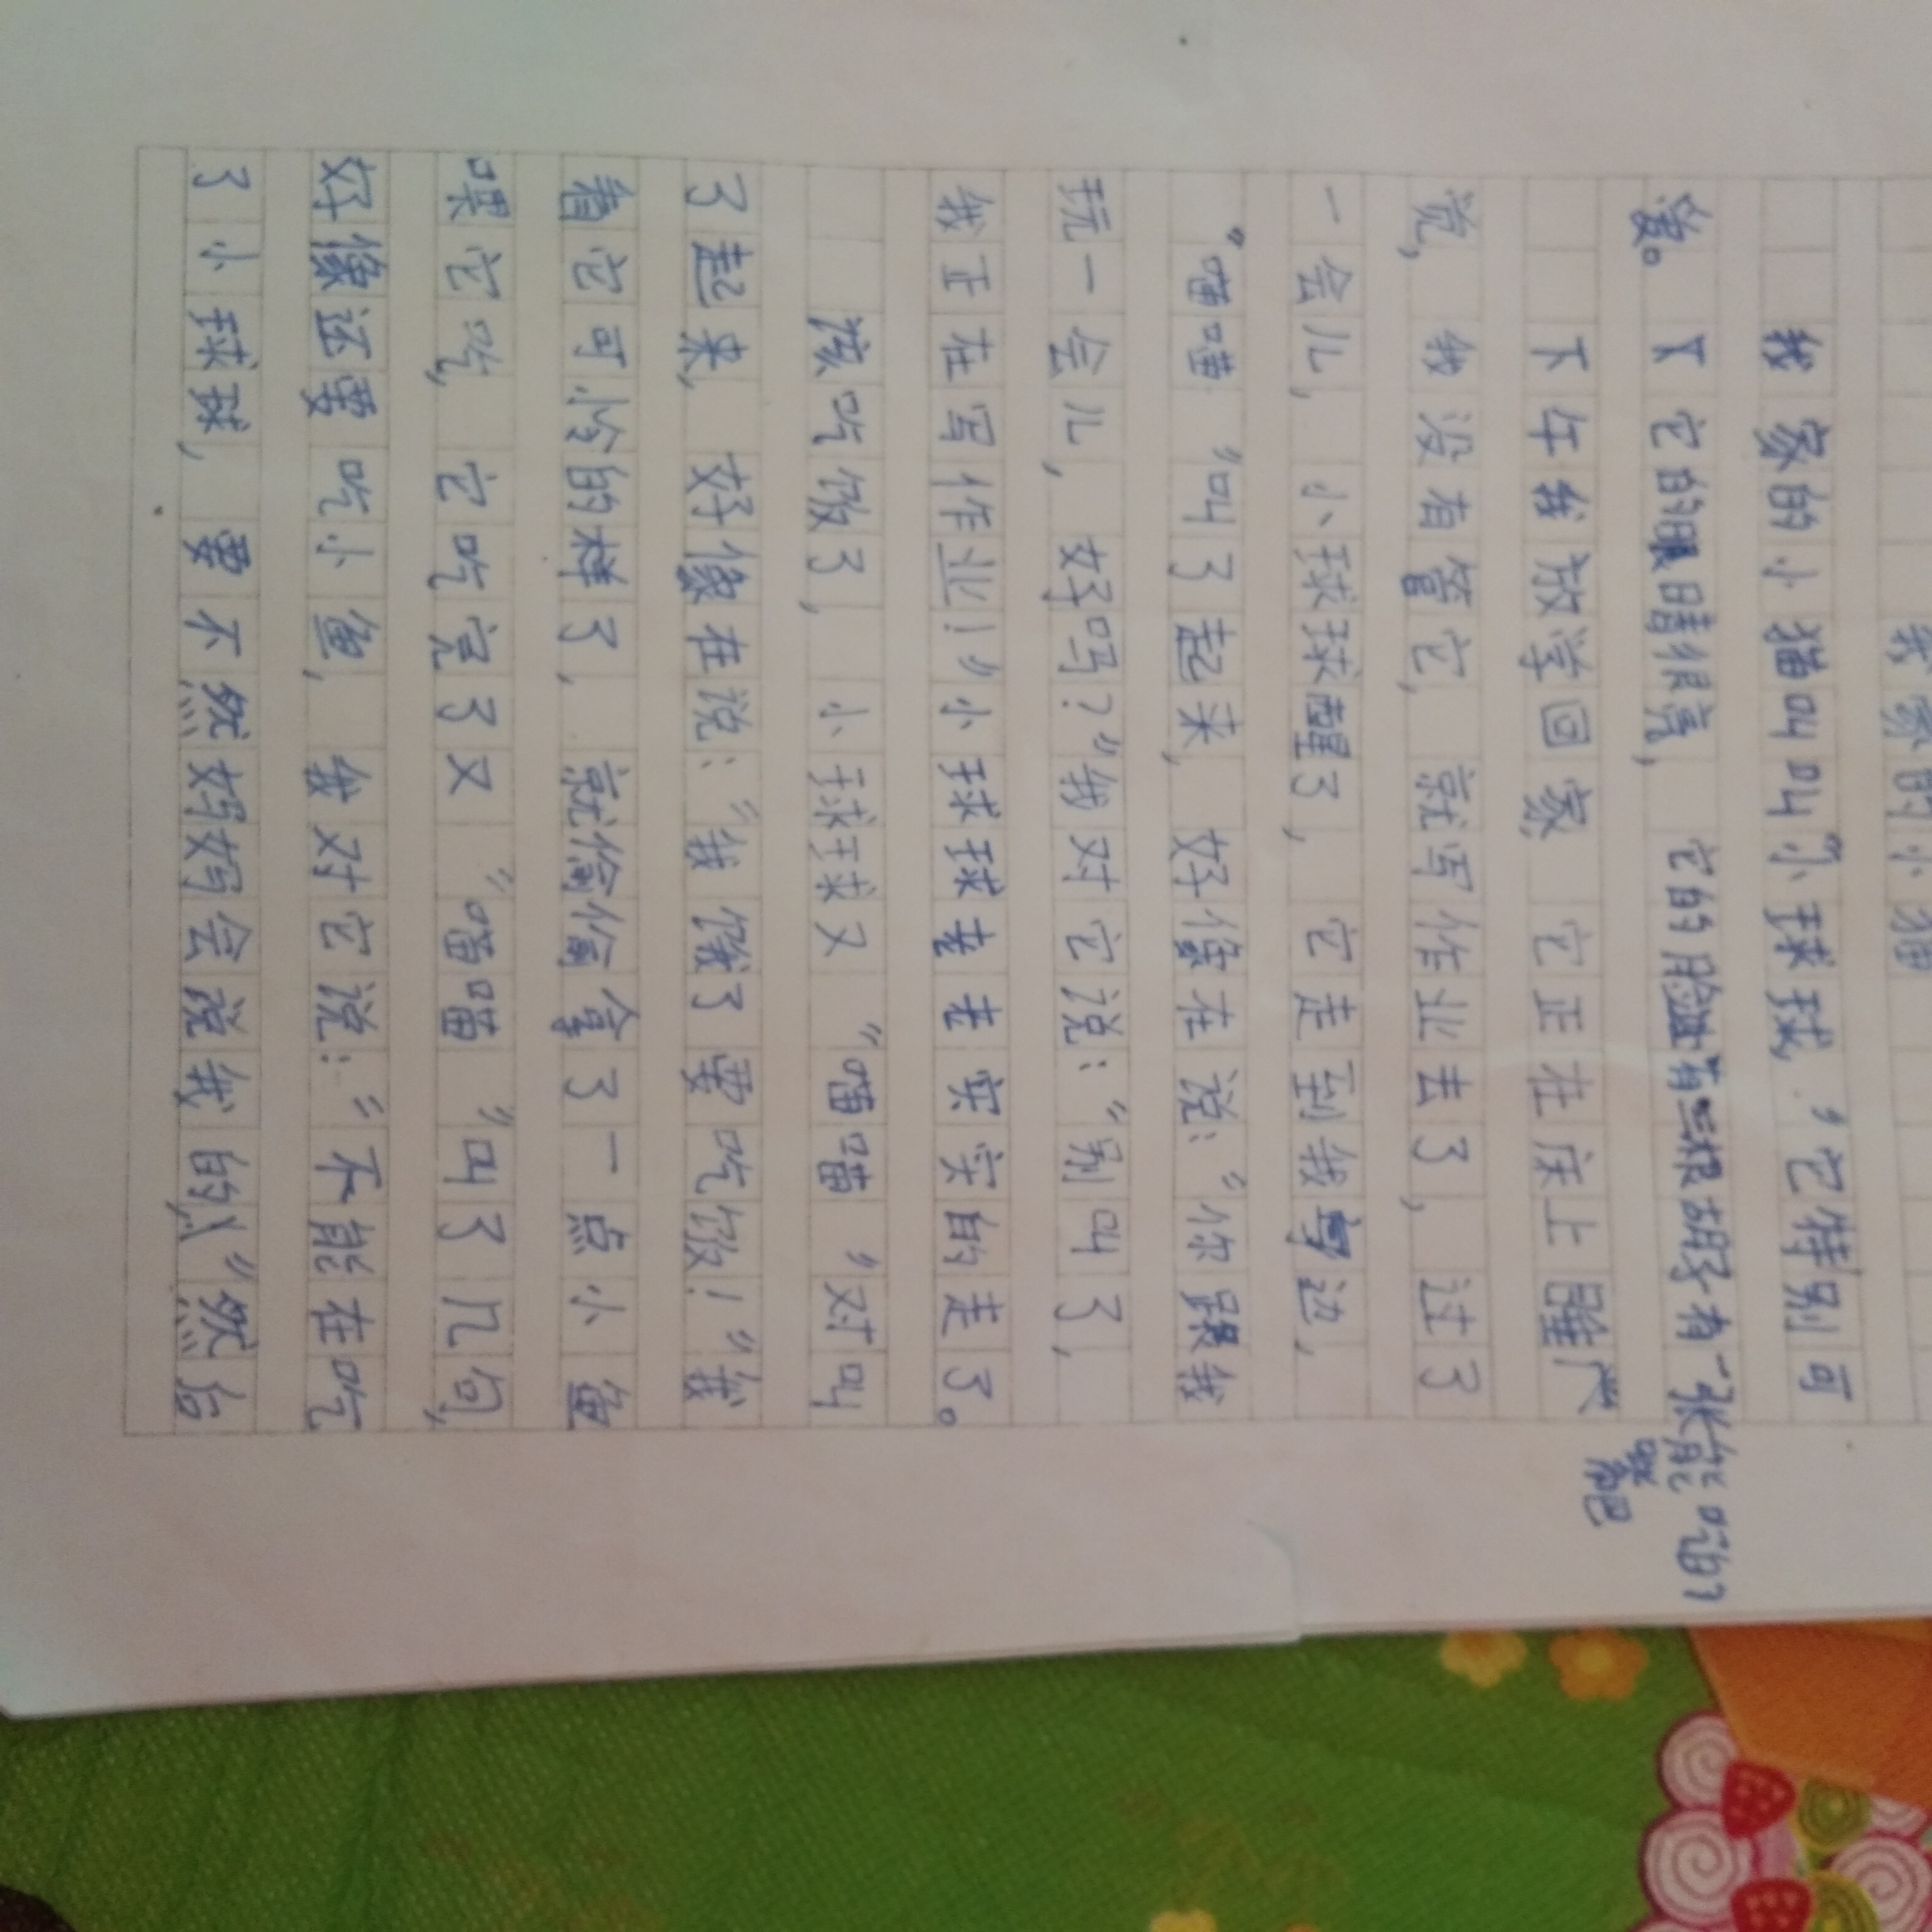 我家的小猫
我家的小猫叫叫“小球球,”它特别可
爱。它的眼睛很亮,它的脸上有三根胡子有一张能吃的
嘴巴
下午我放学回家,它正在床上睡
觉,我没有管它,就写作业去了,过了
一会儿,小球球醒了,它走到我身边,
“喵喵”叫了起来,好像在说:“你跟我
玩一会儿,好吗?”我对它说:“别叫了,
我正在写作业!”小球球老老实实的走了。
该吃饭了,小球球又“喵喵”对叫
了起来,好像在说:“我饿了要吃饭!”我
看它可怜的样了,就偷偷拿了一点小鱼
喂它吃,它吃完了又“喵喵”叫了几句,
好像还要吃小鱼,我对它说:“不能在吃
了小球球,要不然妈妈会说我的,”然后